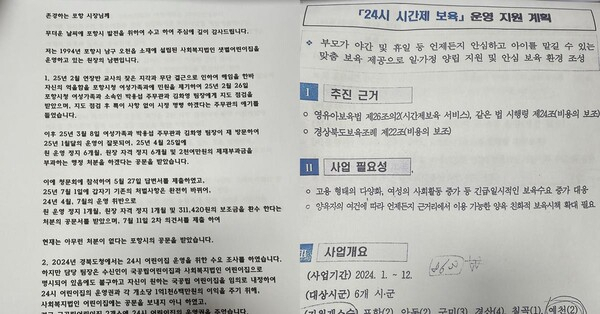 존경하는 포항 시장님께
무더운 날씨에 포항시 발전을 위하여 수고 하여 주심에 깊이 감사드립니다.
저는 1994년 포항시 남구 오천읍 소재에 설립된 사회복지법인 샛별어린이집을
운영하고 있는 원장의 남편입니다.
1. 25년 2월 연장반 교사의 잦은 지각과 무단 결근으로 인하여 해임을 한바
자신의 억울함을 포항시청 여성가족과에 민원을 제기하여 25년 2월 26일
포항시청 여성가족과 소속인 박용섭 주무관과 김희영 팀장에게 지도 점검을
받았으며, 지도 점검 후 특이 사항 없이 시정 명령 하겠다는 주무관의 얘기를
들었습니다.
이후 25년 3월 8일 여성가족과 박용섭 주무관과 김희영 팀장이 재 방문하여
25년 1월달의 운영이 잘못되어, 25년 4월 25일에
원 운영 정지 6개월, 원장 자격 정지 6개월 및 2천여만원의 제재부과금을
부과하는 행정 처분을 하겠다는 공문을 받았습니다.
이에 청문회에 참석하여 5월 27일 답변서를 제출하였고,
25년 7월 1일에 갑자기 기존의 처벌사항은 완전히 바뀌어,
24년 4월, 7월의 운영 위반으로
원 운영 정지 1개월, 원장 자격 정지 1개월 및 311,420원의 보조금을 환수 한다는
처분의 공문서를 받았으며, 7월 11일 2차 의견서를 제출 하여
현재는 아무런 처분이 없다는 포항시의 공문을 받았습니다.
2. 2024년 경북도청에서는 24시 어린이집 운영을 위한 수요 조사를 하였습니다.
하지만 담당 팀장은 수신인이 국공립어린이집과 사회복지법인 어린이집으로
명시되어 있음에도 불구하고 자신이 원하는 국공립 어린이집을 임의로 내정하여
24시 어린이집의 운영권과 각 개소당 1억1천6백만원의 이익을 주기 위해,
사회복지법인 어린이집에는 공문을 보내지 아니 하였고,
24시 어린이집 운영권을 주었습니다.
「24시 시간제 보육」 운영 지원 계획
※ 부모가 야간 및 휴일 등 언제든지 안심하고 아이를 맡길 수 있는
맞춤 보육 제공으로 일·가정 양립 지원 및 안심 보육 환경 조성
Ⅰ 추진 근거
○ 영유아보육법 제26조의2(시간제보육 서비스), 같은 법 시행령 제24조(비용의 보조)
○ 경상북도보육조례 제22조(비용의 보조)
Ⅱ 사업 필요성
○ 고용 형태의 다양화, 여성의 사회활동 증가 등 긴급·일시적인 보육수요 증가 대응
○ 양육자의 여건에 따라 언제든지 근거리에서 이용 가능한 양육 친화적 보육시책 확대 필요
Ⅲ 사업개요
(사업기간) 2024. 1. ~ 12.
(대상시군) 6개 시·군
포항(2), 안동(2), 구미(3), 경산(4), 칠곡(1), 예천(2)